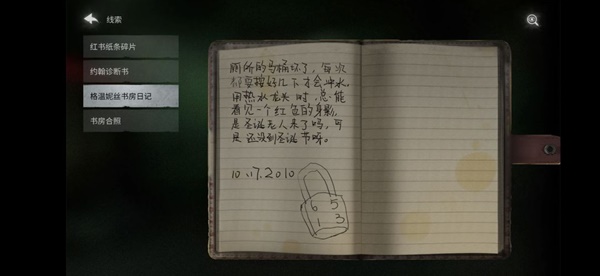 线索
红书纸条碎片
约翰诊断书
格温妮丝书房日记
书房合照
厕所的马桶坏了，每次
都要按好几下才会冲水。
用热水龙头时，总能
看见一个红色的身影，
是圣诞老人来了吗，可
是还没到圣诞节呀。
10.17.2010
6 5
1 3